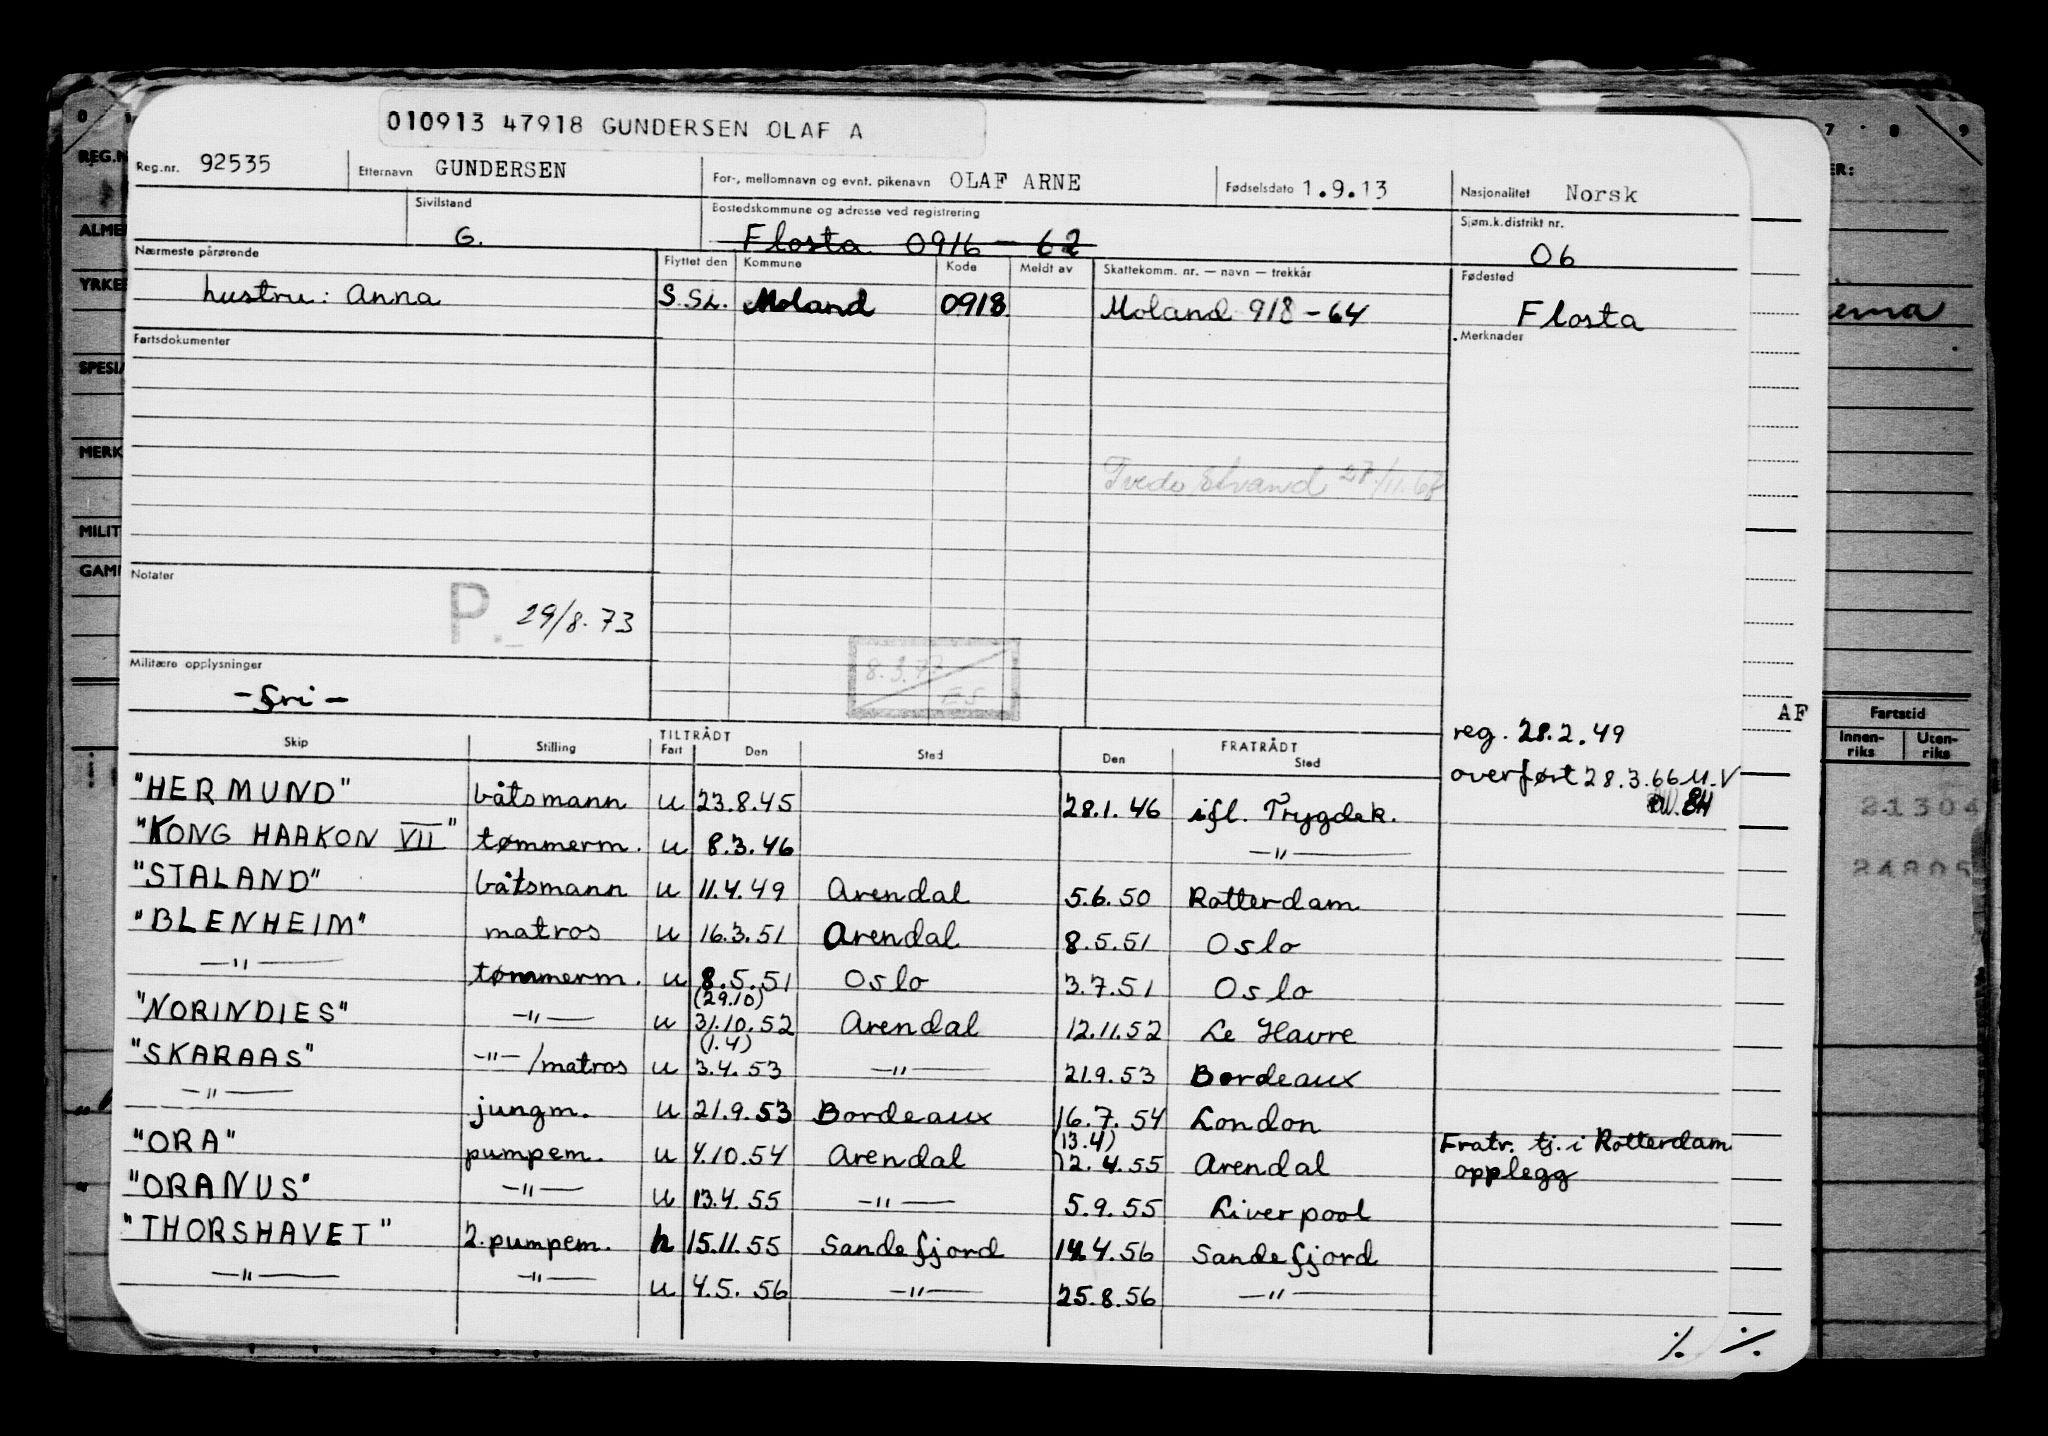 010913 47918 GUNDERSEN OLAF A
Reg.nr. 92535 Etternavn GUNDERSEN For-, mellomnavn og evnt. pikenavn OLAF ARNE Fødselsdato 1.9.13 Nasjonalitet Norsk
Sivilstand G. Bostedskommune og adresse ved registrering Flosta 0916 - 62 Sjøm.k.distrikt nr. 06
Nærmeste pårørende Flyttet den Kommune Kode Meldt av Skattekomm. nr. — navn — trekkår Fødested
hustru: Anna S.SL. Moland 0918 Moland 918 - 64 Flosta
Fartsdokumenter Merknader
Tvedestrand 27/11.68
Notater
P. 29/8.73
8.3.72
ES
Militære opplysninger
- fri -
reg. 28.2.49
overført 28.3.66 M.V
Skip Stilling TILTRÅDT Fart Den Sted FRATRÅDT Den Sted
"HERMUND" båtsmann u 23.8.45 28.1.46 ifl. Trygdek.
"KONG HAAKON VII" tømmerm. u 8.3.46 —"—
"STALAND" båtsmann u 11.4.49 Arendal 5.6.50 Rotterdam
"BLENHEIM" matros u 16.3.51 Arendal 8.5.51 Oslo
—"— tømmerm. u 8.5.51 Oslo 3.7.51 Oslo
"NORINDIES" —"— u (29.10) 31.10.52 Arendal 12.11.52 Le Havre
"SKARAAS" —"—/matros u (1.4) 3.4.53 —"— 21.9.53 Bordeaux
—"— jungm. u 21.9.53 Bordeaux 16.7.54 London
"ORA" pumpem. u 4.10.54 Arendal (13.4) 12.4.55 Arendal Fratr. tj. i Rotterdam opplegg
"ORANUS" —"— u 13.4.55 —"— 5.9.55 Liverpool
"THORSHAVET" 2.pumpem. h 15.11.55 Sandefjord 14.4.56 Sandefjord
—"— —"— u 4.5.56 —"— 25.8.56 —"—
·/. ·/.
REG.N
ALME
YRKE
SPESI
MERK
MILIT
GAM
7 8 9
ER:
AF
Fartstid
Innen-riks Uten-riks
21304